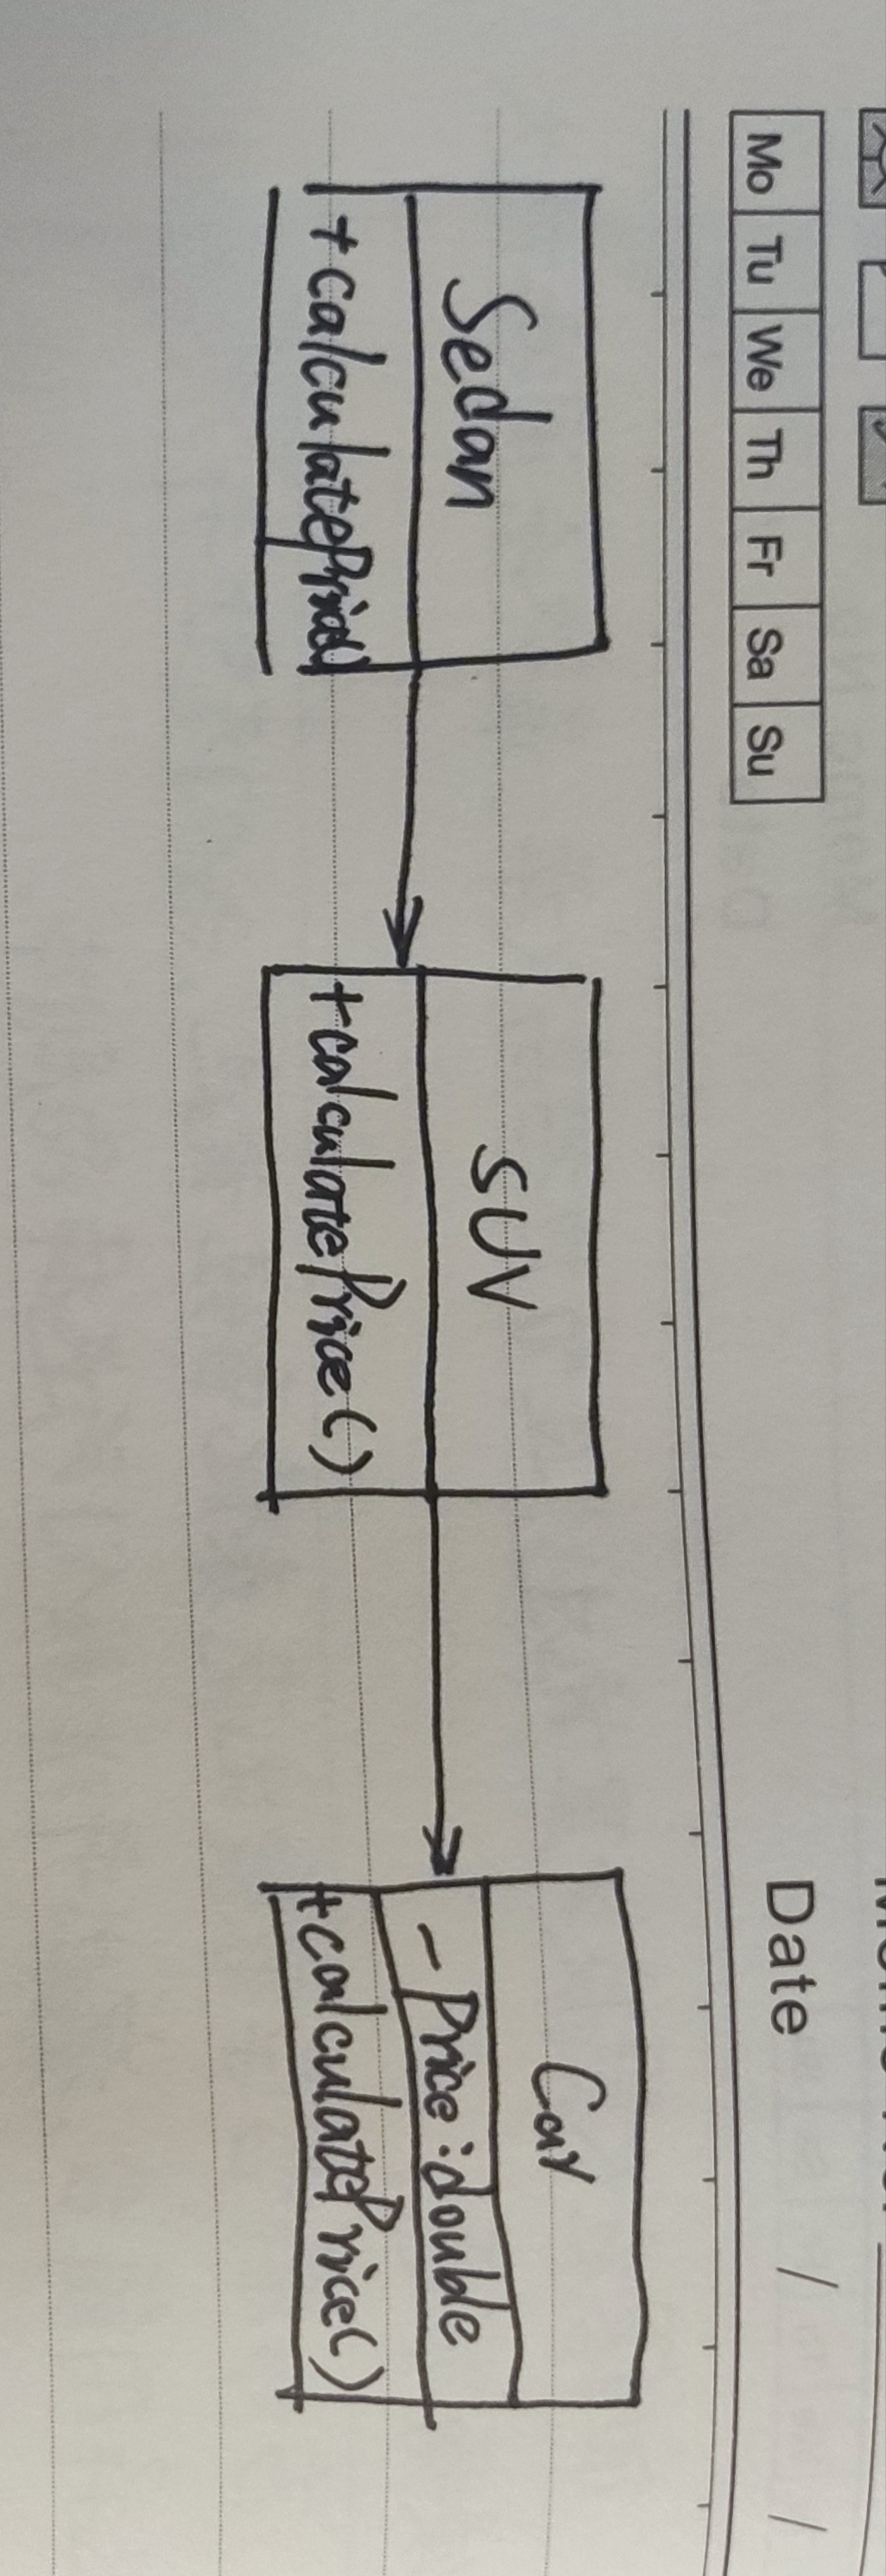 Mo Tu We Th Fr Sa Su
Date / /
Sedan
+calculatePrice()
SUV
+calculatePrice()
Car
- Price:double
+calculatePrice()